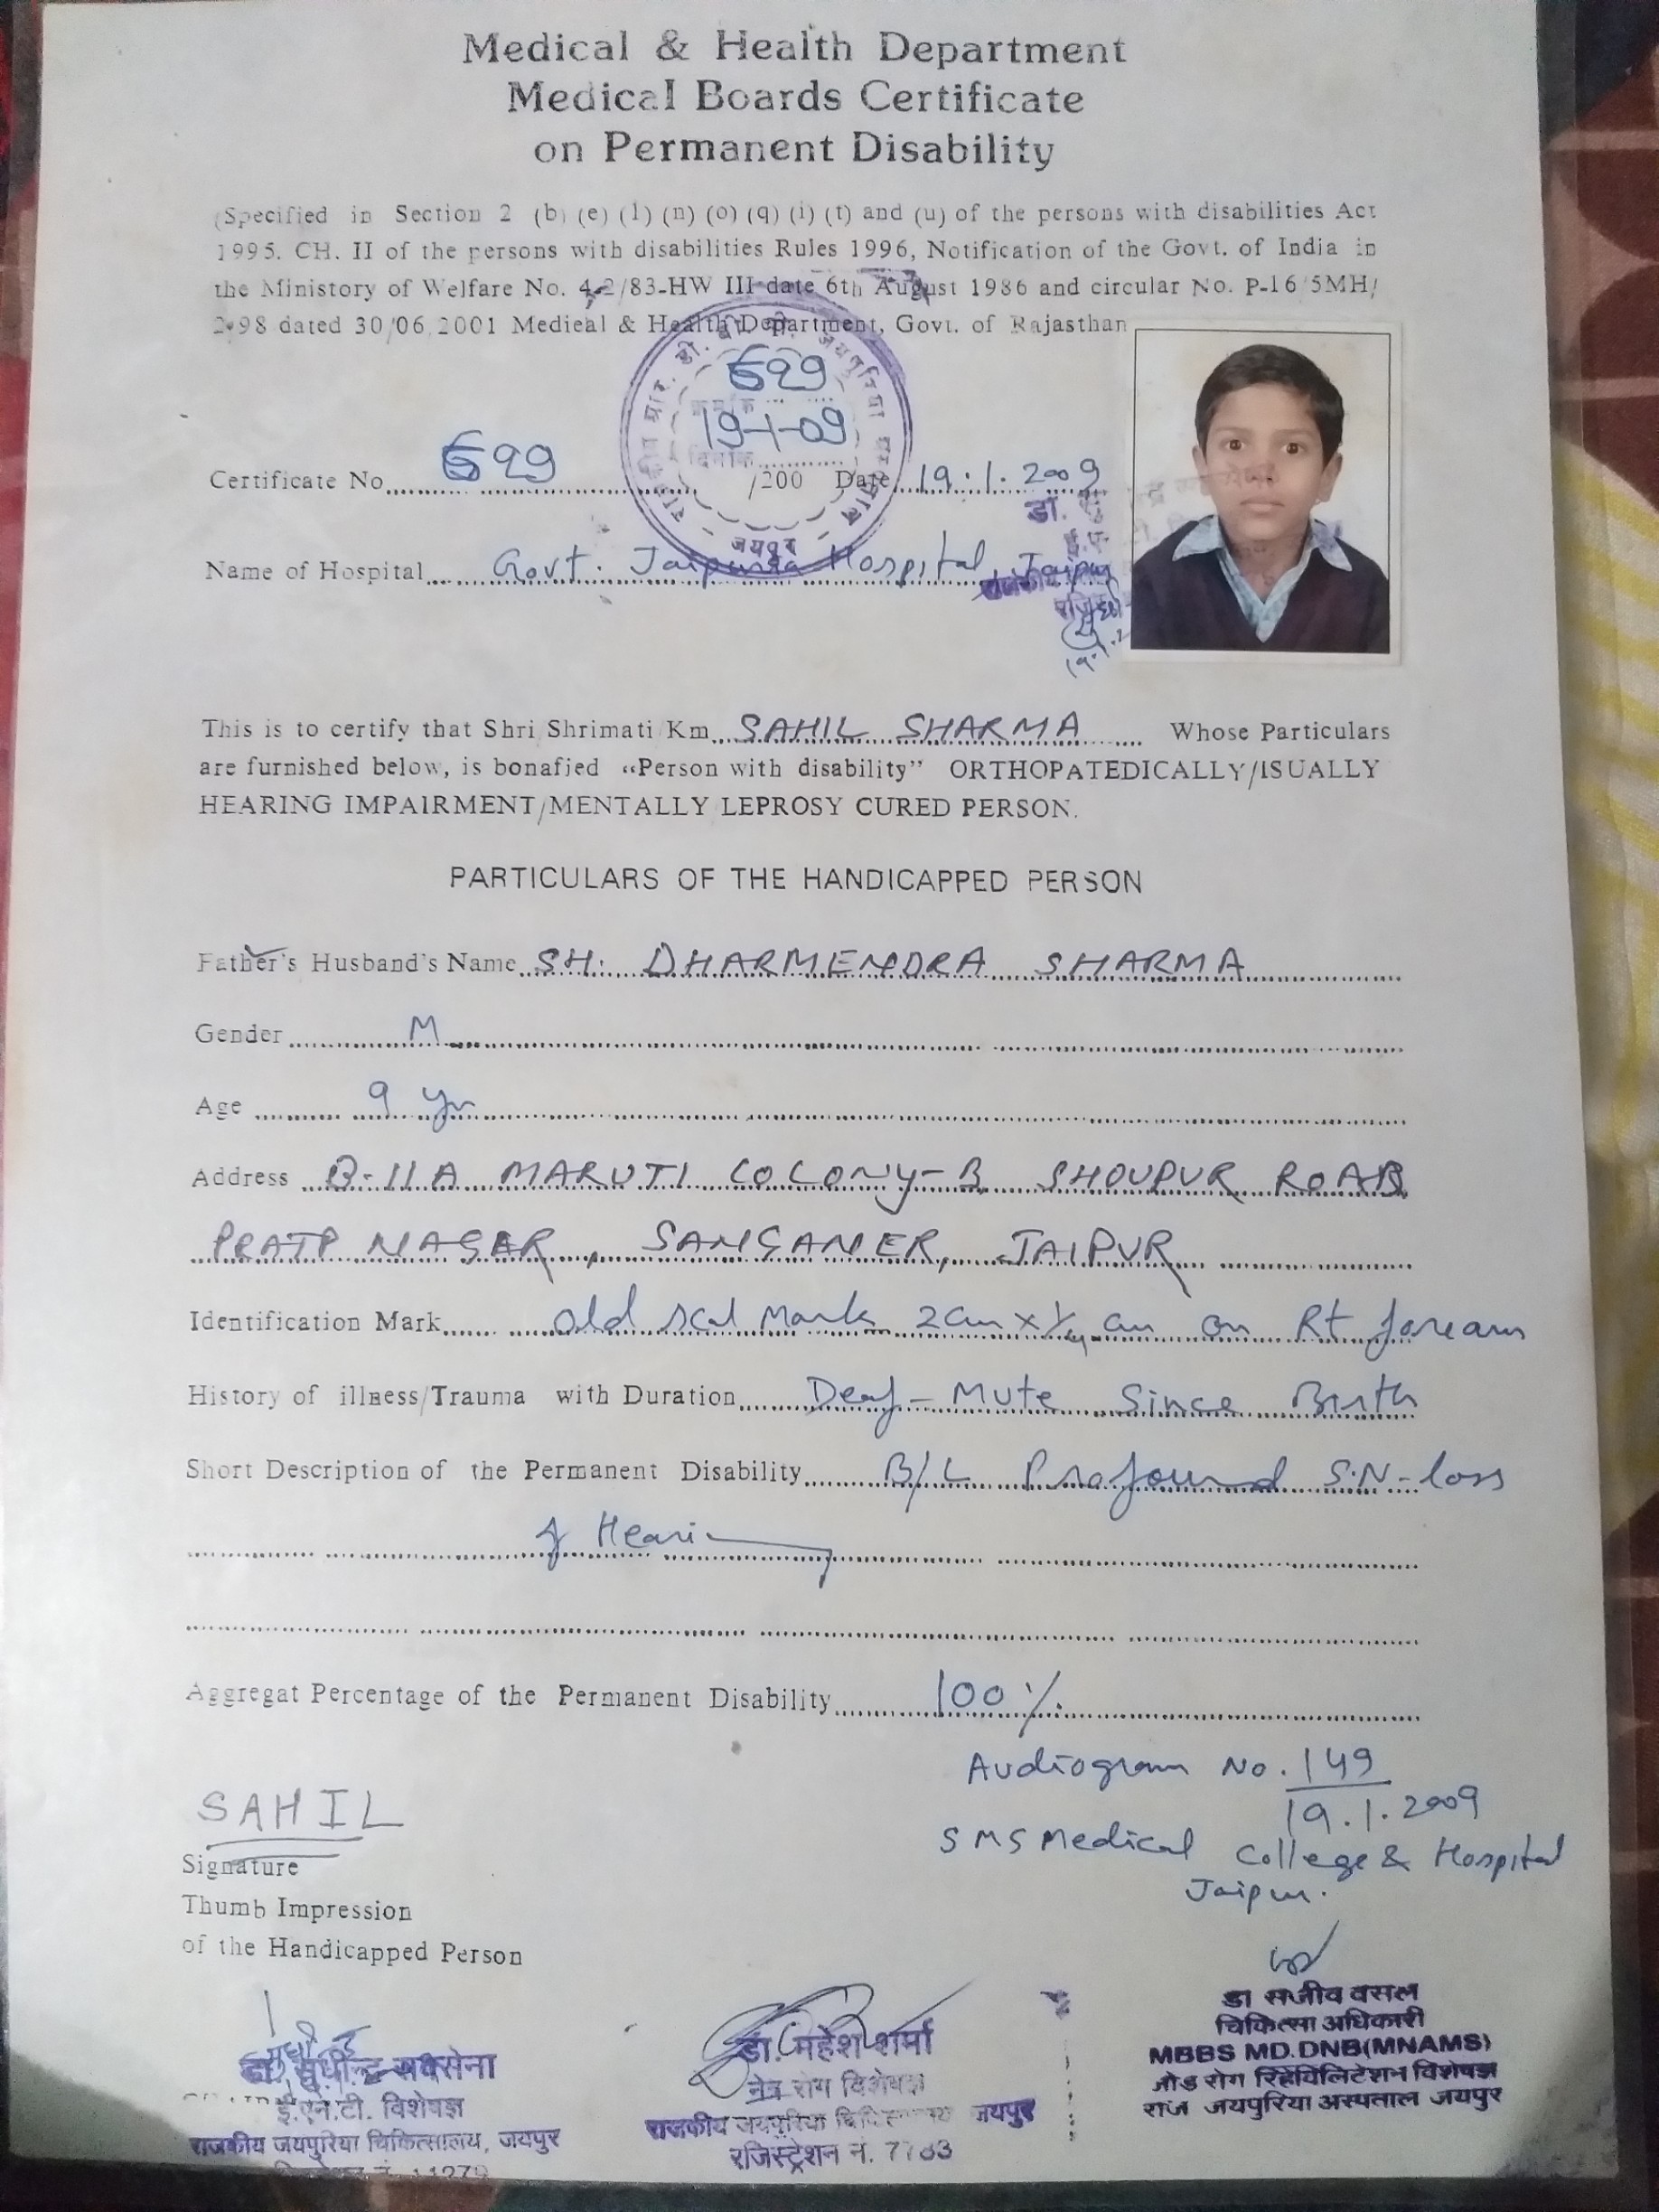 Medical & Health Department
Medical Boards Certificate
on Permanent Disability
(Specified in Section 2 (b) (e) (l) (n) (o) (q) (i) (t) and (u) of the persons with disabilities Act
1995. CH. II of the persons with disabilities Rules 1996, Notification of the Govt. of India in
the Ministory of Welfare No. 4-2/83-HW III date 6th August 1986 and circular No. P-16/5MH/
2-98 dated 30/06/2001 Medieal & Health Department, Govt. of Rajasthan
699
क्रमांक
19-1-09
दिनांक
जयपुर
Certificate No. 699 /200 Date 19.1.2009
डॉ.
Name of Hospital Govt. Jaipuria Hospital Jaipur
This is to certify that Shri Shrimati Km SAHIL SHARMA Whose Particulars
are furnished below, is bonafied “Person with disability” ORTHOPATEDICALLY/ISUALLY
HEARING IMPAIRMENT/MENTALLY LEPROSY CURED PERSON.
PARTICULARS OF THE HANDICAPPED PERSON
Father's Husband's Name SH. DHARMENDRA SHARMA
Gender M
Age 9 yr
Address B-11A MARUTI COLONY-B SHOUPUR ROAD
PRATP NAGAR, SANGANER, JAIPUR
Identification Mark old scal Mark 2cm x 1/4 cm on Rt forearm
History of illness/Trauma with Duration Deaf-Mute Since Birth
Short Description of the Permanent Disability B/L Profound S.N-loss
of Hearing
Aggregat Percentage of the Permanent Disability 100%
Audiogram No. 149
19.1.2009
SMS Medical College & Hospital
Jaipur.
SAHIL
Signature
Thumb Impression
of the Handicapped Person
डॉ. सुधीन्द्र सक्सेना
ई.एन.टी. विशेषज्ञ
राजकीय जयपुरिया चिकित्सालय, जयपुर
डॉ. महेश शर्मा
नेत्र रोग विशेषज्ञ
राजकीय जयपुरिया चिकित्सालय जयपुर
रजिस्ट्रेशन नं.
डा सजीव वसल
चिकित्सा अधिकारी
MBBS MD.DNB(MNAMS)
जोड रोग रिहेबिलिटेशन विशेषज्ञ
राज जयपुरिया अस्पताल जयपुर